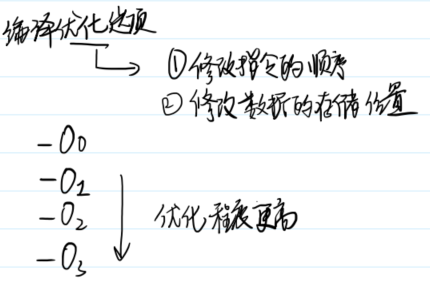 编译优化选项
①修改指令的顺序
②修改数据的存储位置
-O0
-O1
-O2
优化程度更高
-O3